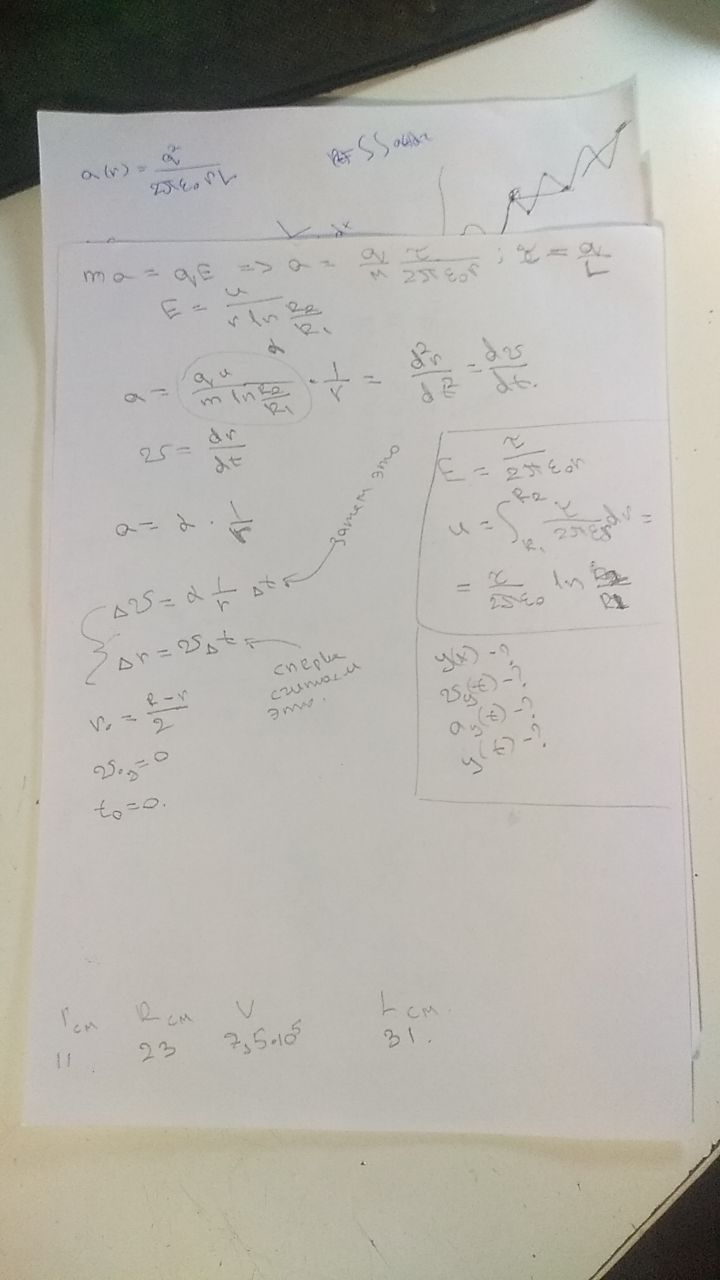 a(r) = q²/(2πε₀rL)
ma = qE => a = q/m τ/(2πε₀r) ; τ = q/L
E = u/(r ln R₂/R₁)
α
a = qu/(m ln R₂/R₁) · 1/r = d²r/dt² = dv/dt.
v = dr/dt
a = α · 1/r
затем это
Δv = α 1/r Δt
Δr = vΔt
сперва
считаем
это.
r₀ = (R-r)/2
t₀=0.
E = τ/(2πε₀r)
u = ∫ R₁ R₂ τ/(2πε₀r) dr =
= τ/(2πε₀) ln R₂/R₁
y(x) -?
vy(t) -?
ay(t) -?
y(t) -?
rсм Rсм V Lсм.
11. 23 7,5·10⁵ 31.